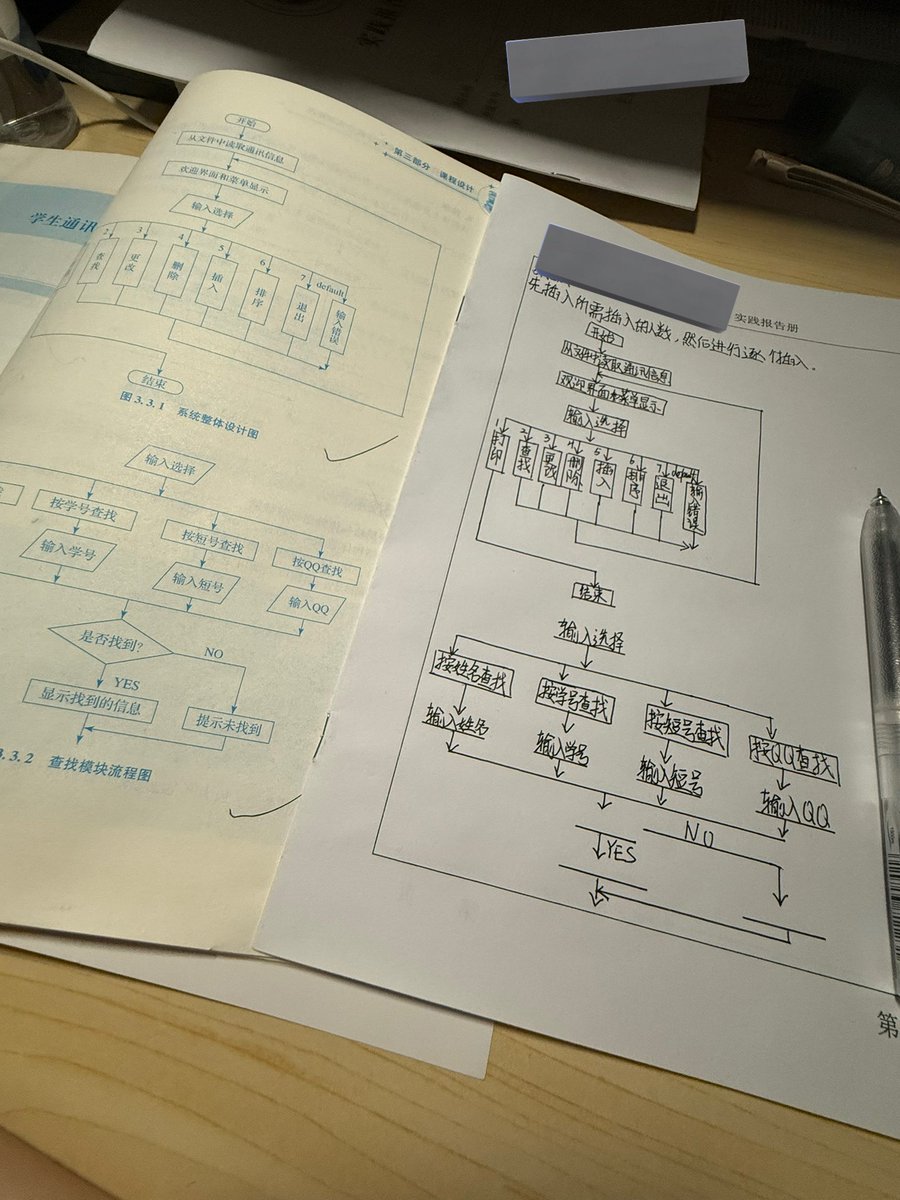 第三部分 课程设计
开始
从文件中读取通讯信息
欢迎界面和菜单显示
输入选择
2 3 4 5 6 7 default
查找 更改 删除 插入 排序 退出 输入错误
结束
图 3.3.1 系统整体设计图
输入选择
按学号查找 按短号查找 按QQ查找
输入学号 输入短号 输入QQ
是否找到?
NO
YES
显示找到的信息
提示未找到
3.3.2 查找模块流程图
学生通讯
实践报告册
先插入所需插入的人数,然后进行逐个插入。
开始
从文件中读取通讯信息
欢迎界面和菜单显示
输入选择
1 2 3 4 5 6 7 default
打印 查找 更改 删除 插入 排序 退出 输入错误
结束
输入选择
按姓名查找 按学号查找 按短号查找 按QQ查找
输入姓名 输入学号 输入短号 输入QQ
NO
YES
第